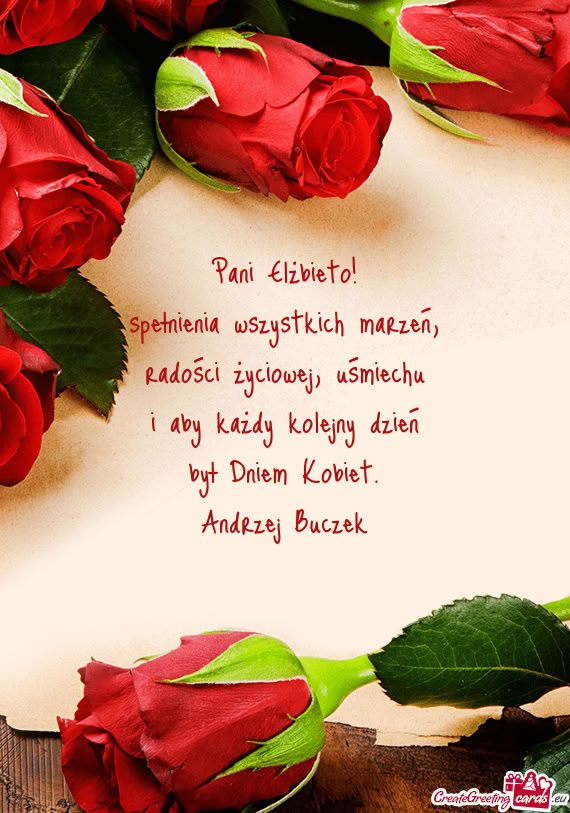 Pani Elżbieto!
spełnienia wszystkich marzeń,
radości życiowej, uśmiechu
i aby każdy kolejny dzień
był Dniem Kobiet.
Andrzej Buczek
CreateGreeting cards .eu